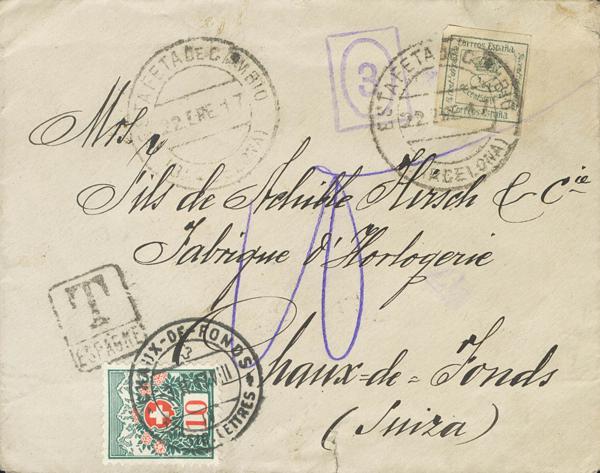 ESTAFETA DE CAMBIO
22 ENE 17
3
CORREOS ESPAÑA
CORREOS ESPAÑA
ESTAFETA DE CAMBIO
22 ENE
(BARCELONA)
Mrs,
Fils de Achille Hirsch & Cie
Fabrique d'Horlogerie
Chaux-de-Fonds
(Suiza)
10
T
ESPAGNE
CHAUX-DE-FONDS
VII
LETTRES
10